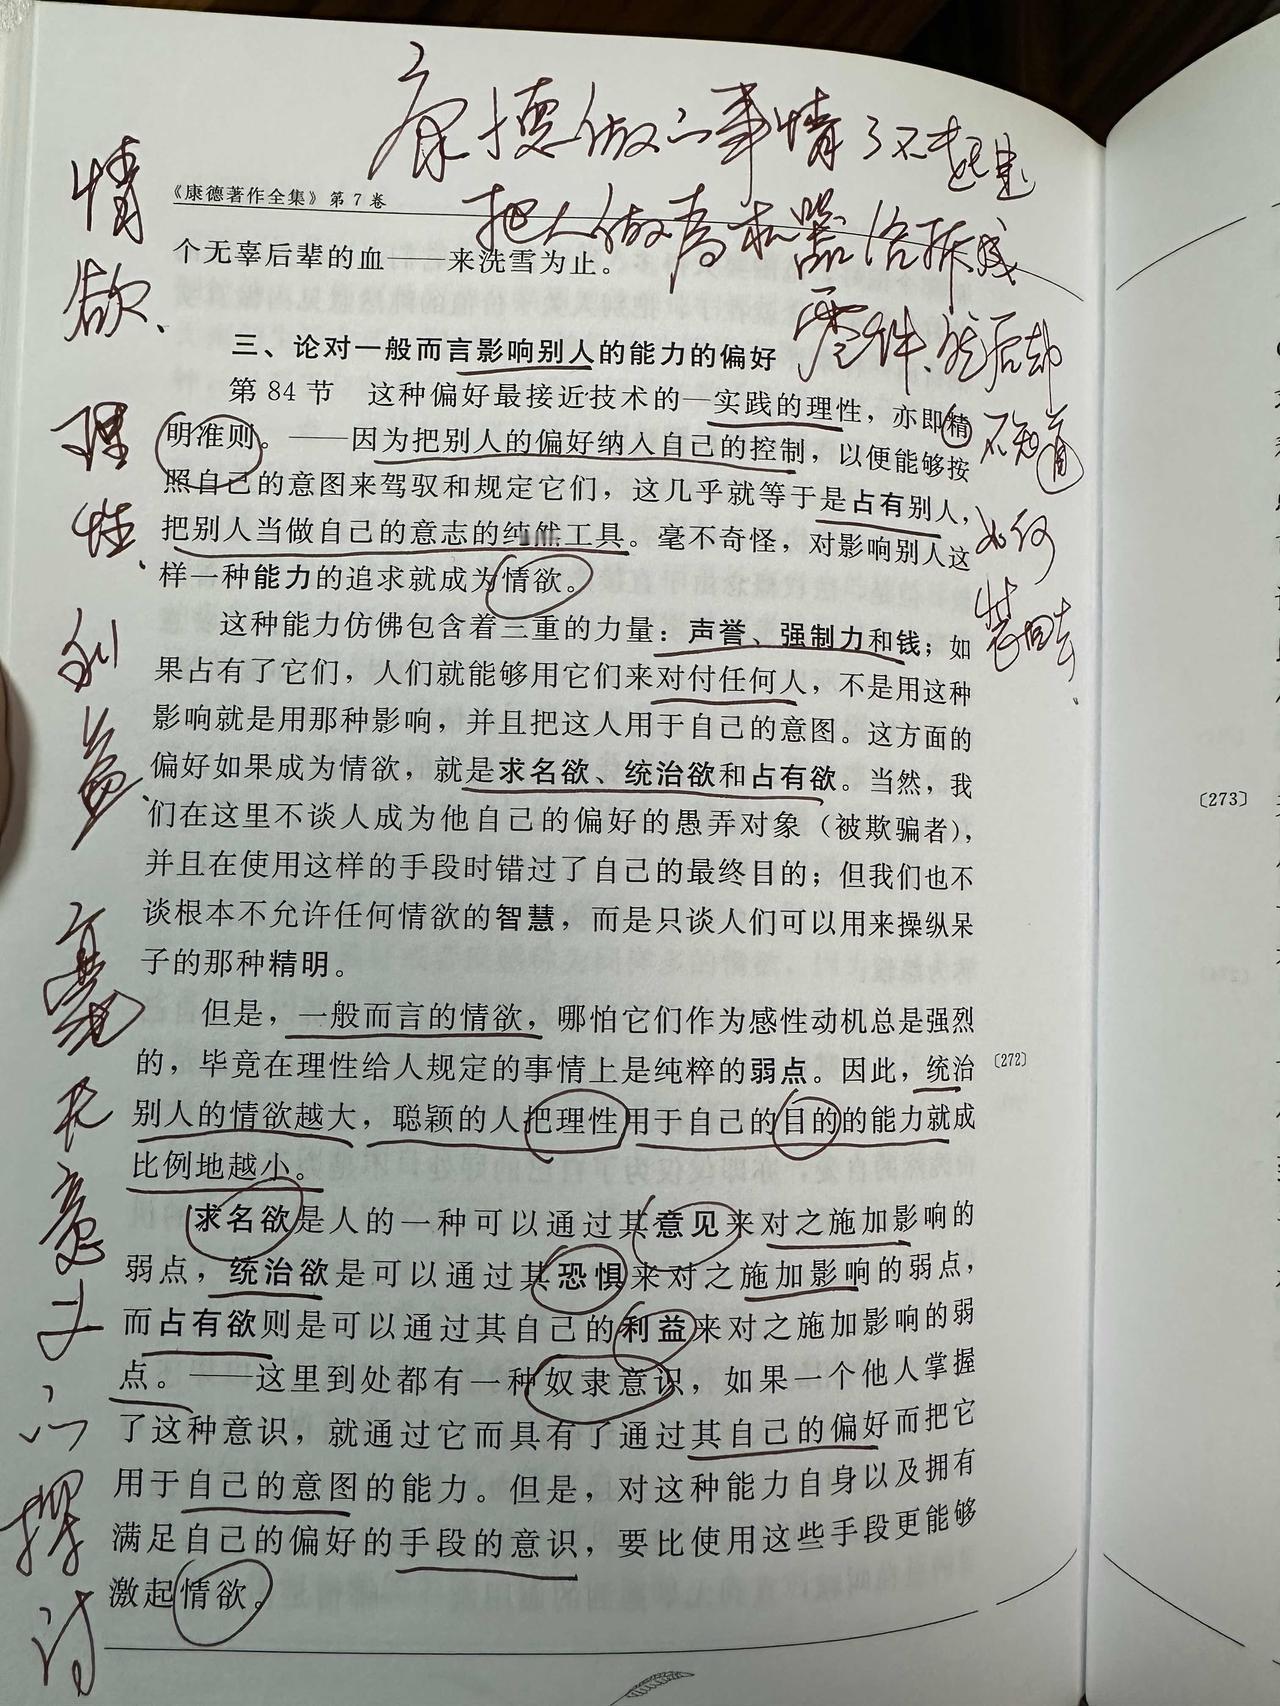 康德做的事情了不起是
把人做为机器给拆成
零件、然后却
不知道
如何
装回去、
情欲、理性、利益
《康德著作全集》第7卷
个无辜后辈的血——来洗雪为止。
三、论对一般而言影响别人的能力的偏好
第84节 这种偏好最接近技术的—实践的理性，亦即精
明准则。——因为把别人的偏好纳入自己的控制，以便能够按
照自己的意图来驾驭和规定它们，这几乎就等于是占有别人，
把别人当做自己的意志的纯然工具。毫不奇怪，对影响别人这
样一种能力的追求就成为情欲。
这种能力仿佛包含着三重的力量：声誉、强制力和钱；如
果占有了它们，人们就能够用它们来对付任何人，不是用这种
影响就是用那种影响，并且把这人用于自己的意图。这方面的
偏好如果成为情欲，就是求名欲、统治欲和占有欲。当然，我
们在这里不谈人成为他自己的偏好的愚弄对象（被欺骗者），
并且在使用这样的手段时错过了自己的最终目的；但我们也不
谈根本不允许任何情欲的智慧，而是只谈人们可以用来操纵呆
子的那种精明。
但是，一般而言的情欲，哪怕它们作为感性动机总是强烈
的，毕竟在理性给人规定的事情上是纯粹的弱点。因此，统治
〔272〕
别人的情欲越大，聪颖的人把理性用于自己的目的的能力就成
比例地越小。
求名欲是人的一种可以通过其意见来对之施加影响的
弱点，统治欲是可以通过其恐惧来对之施加影响的弱点，
而占有欲则是可以通过其自己的利益来对之施加影响的弱
点。——这里到处都有一种奴隶意识，如果一个他人掌握
了这种意识，就通过它而具有了通过其自己的偏好而把它
用于自己的意图的能力。但是，对这种能力自身以及拥有
满足自己的偏好的手段的意识，要比使用这些手段更能够
激起情欲。
〔273〕